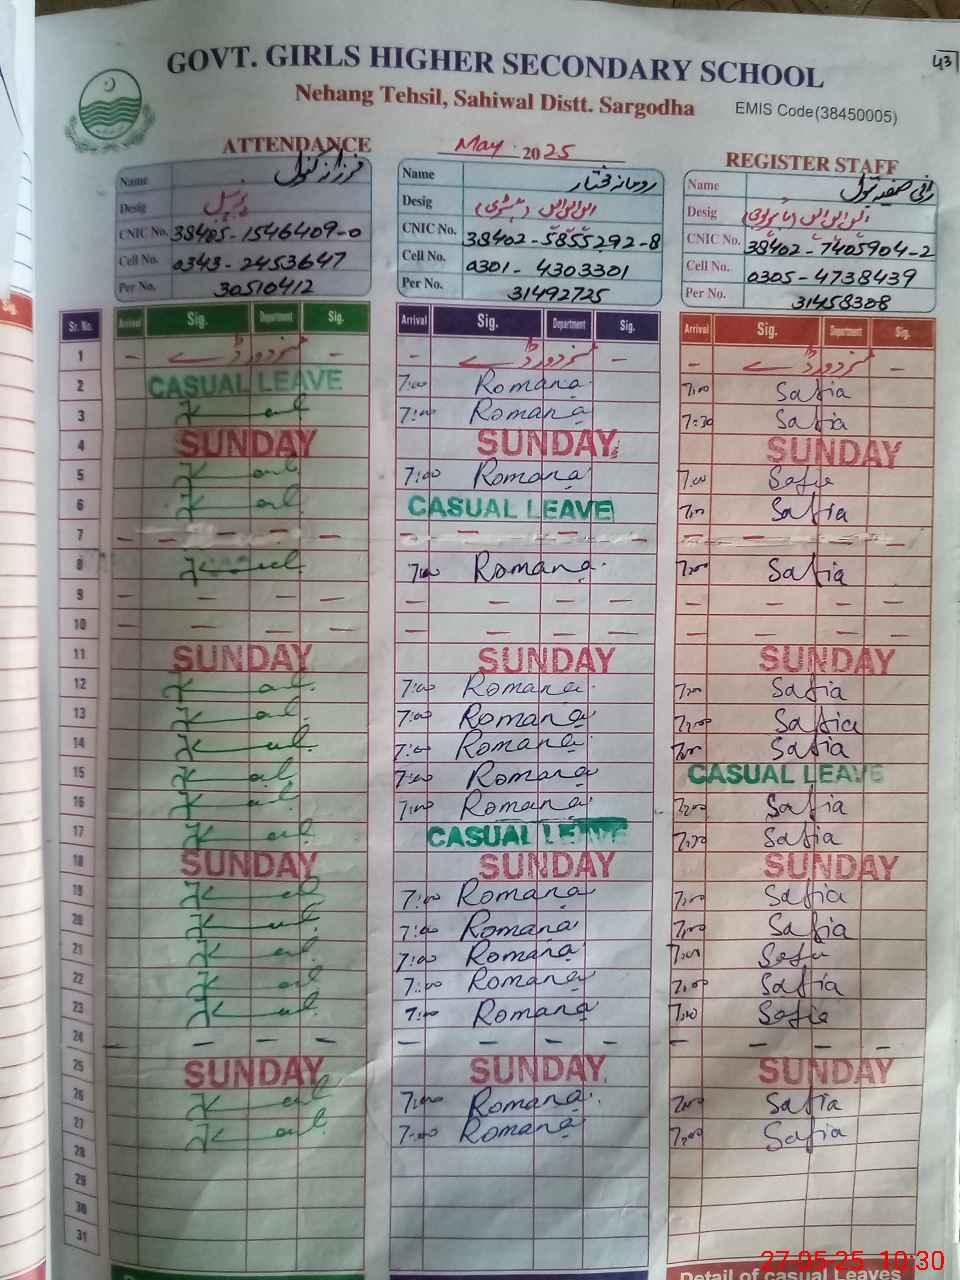 43
GOVT. GIRLS HIGHER SECONDARY SCHOOL
Nehang Tehsil, Sahiwal Distt. Sargodha EMIS Code(38450005)
ATTENDANCE May 2025 REGISTER STAFF
Name فرزانہ کنول Name رومانہ مختار Name رانی صفیہ بتول
Desig پرنسپل Desig Desig
CNIC No. 38405-1546409-0 CNIC No. 38402-5855292-8 CNIC No. 38402-7405904-2
Cell No. 0343-2453647 Cell No. 0301-4303301 Cell No. 0305-4738439
Per No. 30510412 Per No. 31492725 Per No. 31458308
Sr. No. Arrival Sig. Department Sig. Arrival Sig. Department Sig. Arrival Sig. Department Sig.
1 – مزدور ڈے – – مزدور ڈے – – مزدور ڈے –
2 CASUAL LEAVE 7:00 Romana 7:00 Safia
3 7:00 Romana 7:30 Safia
4 SUNDAY SUNDAY SUNDAY
5 7:00 Romana 7:00 Safia
6 CASUAL LEAVE 7:00 Safia
7 – – – – – – – – – – – –
8 7:00 Romana 7:00 Safia
9 – – – – – – – – – – – –
10 – – – – – – – – – – – –
11 SUNDAY SUNDAY SUNDAY
12 7:00 Romana 7:00 Safia
13 7:00 Romana 7:00 Safia
14 7:00 Romana 7:00 Safia
15 7:00 Romana CASUAL LEAVE
16 7:00 Romana 7:00 Safia
17 CASUAL LEAVE Safia
18 SUNDAY SUNDAY SUNDAY
19 7:00 Romana 7:00 Safia
20 7:00 Romana 7:00 Safia
21 7:00 Romana 7:00 Safia
22 7:00 Romana 7:00 Safia
23 7:00 Romana 7:00 Safia
24 – – – – – – – – – – – –
25 SUNDAY SUNDAY SUNDAY
26 7:00 Romana 7:00 Safia
27 7:00 Romana 7:00 Safia
28
29
30
31
Detail of casual Leaves
27-05-25 10:30